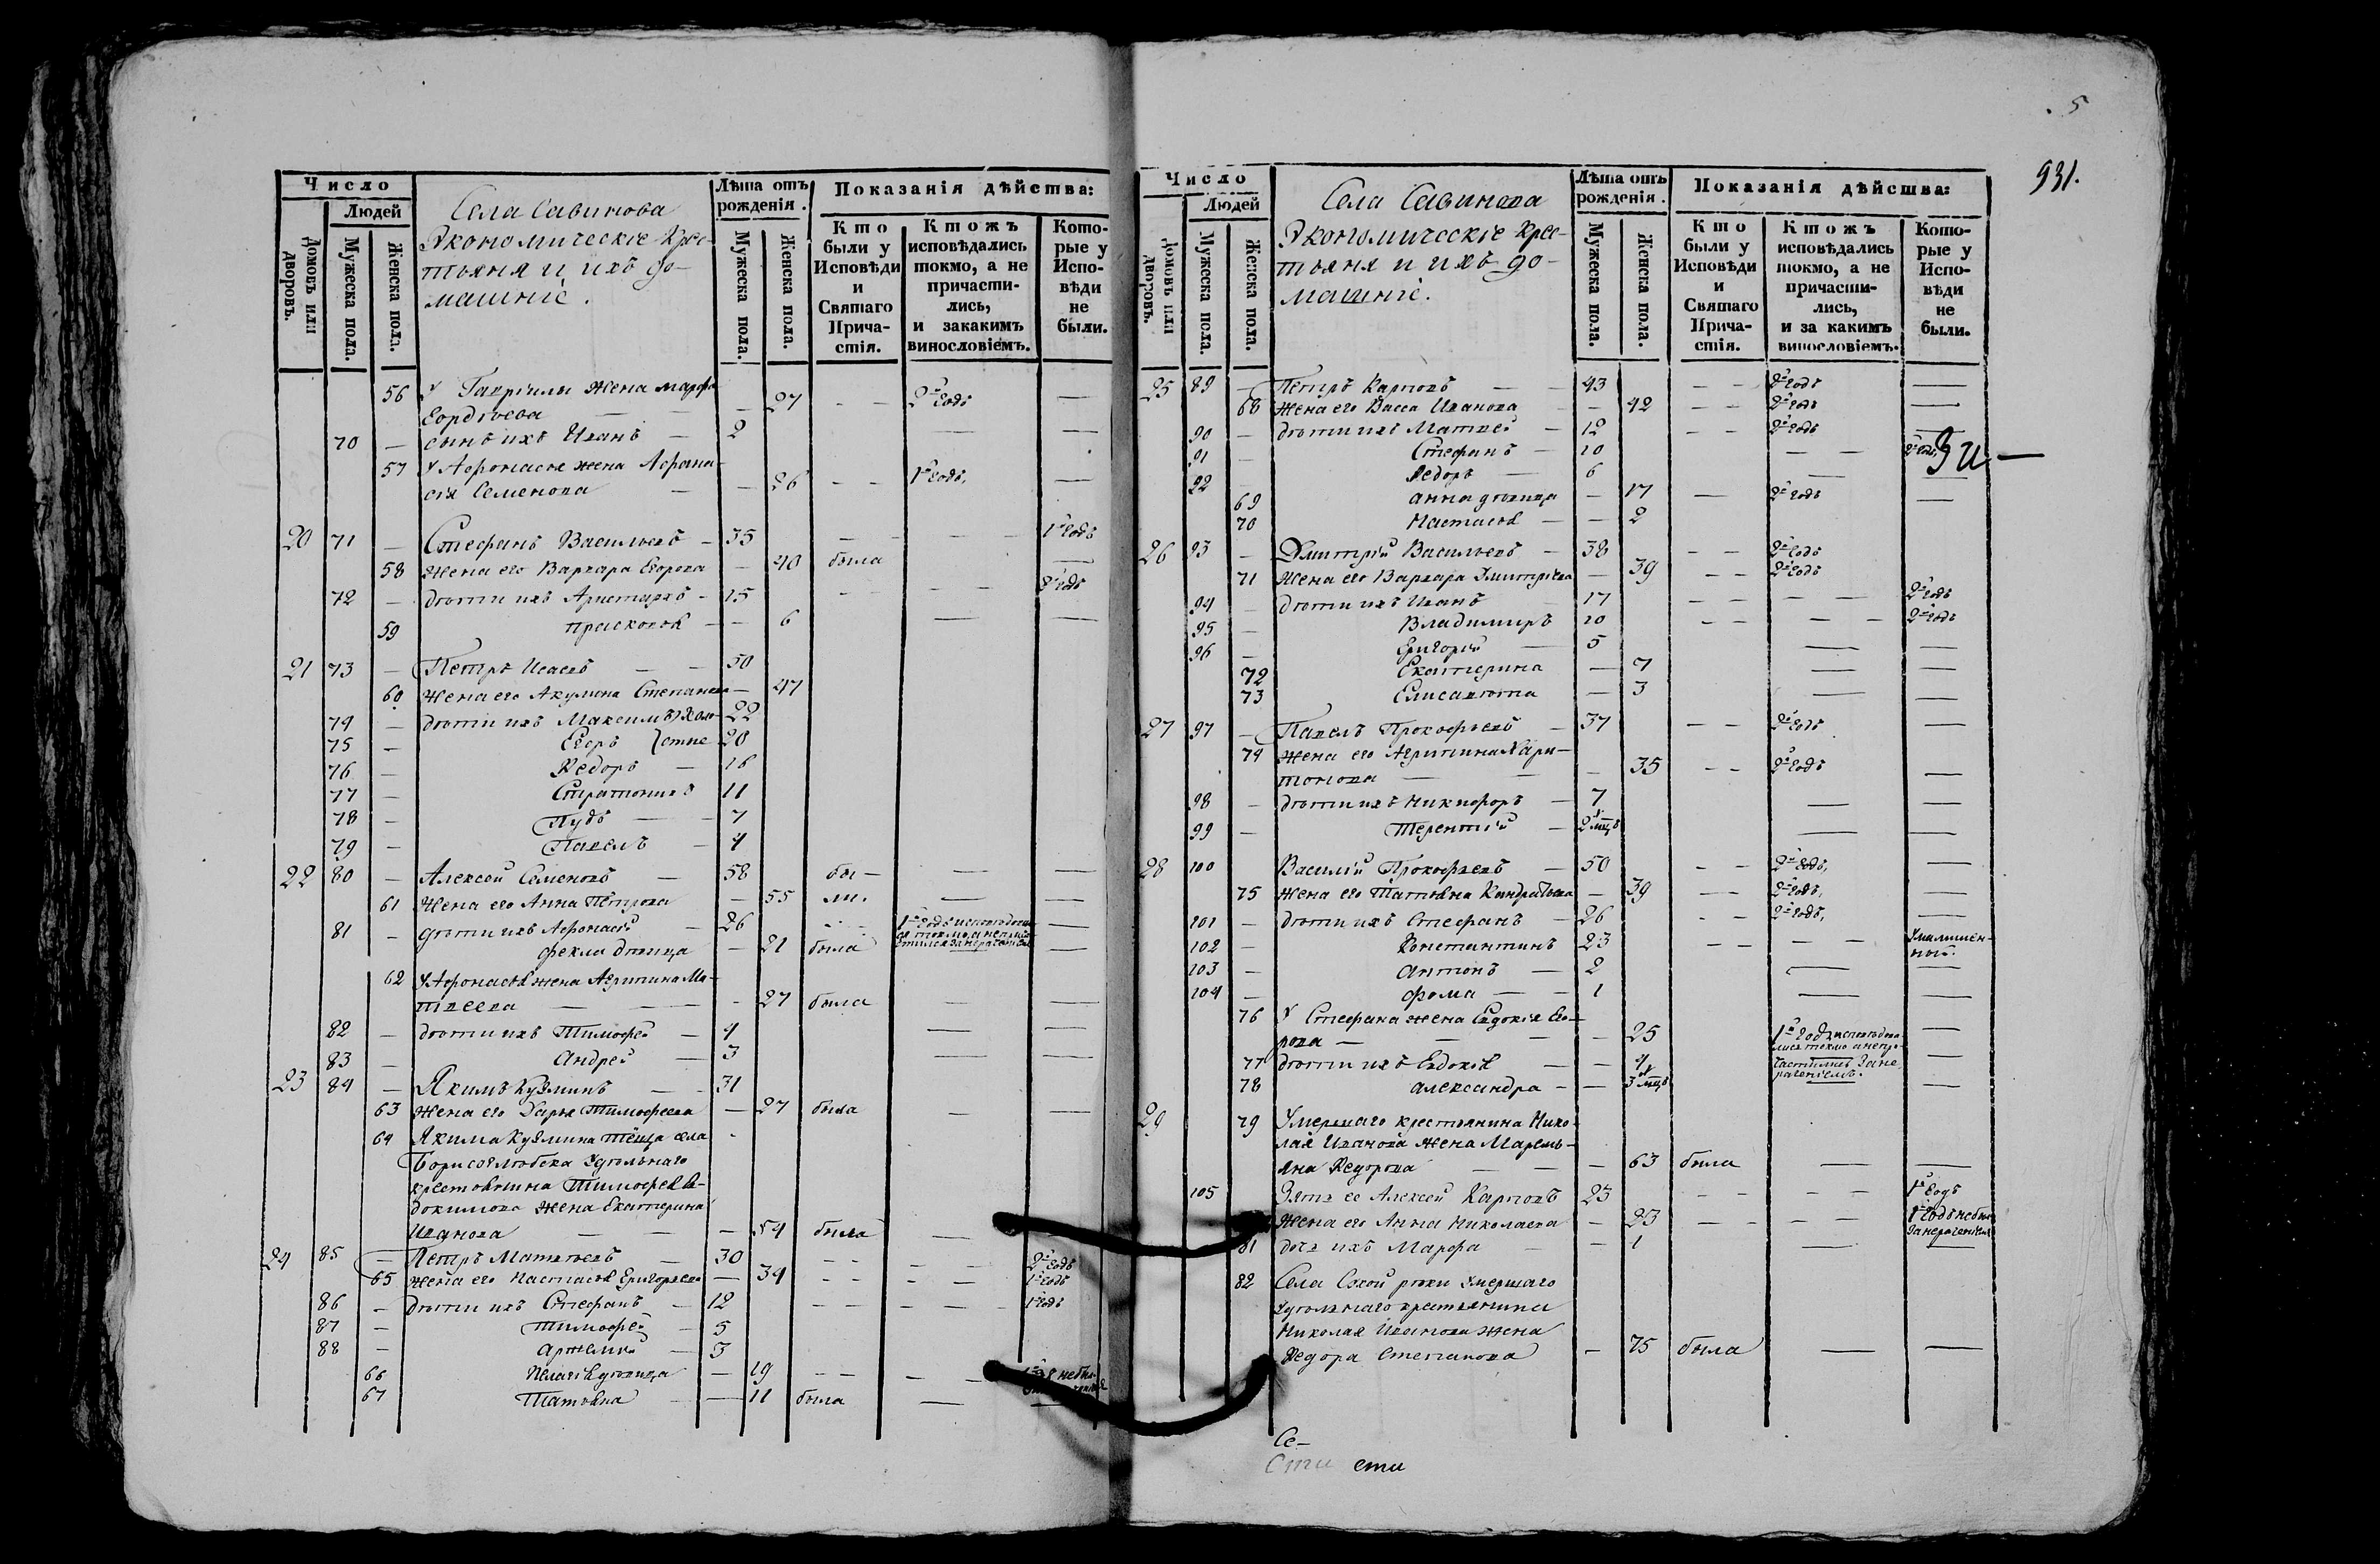 5
931.
Число
Людей
Домовъ или дворовъ.
Мужеска пола.
Женска пола.
Села Савинова
Экономическіе Крес-
тьяня и ихъ до-
машніе.
Лѣта отъ рожденія.
Мужеска пола.
Женска пола.
Показанія дѣйства:
Кто были у Исповѣди и Святаго Причастія.
Ктожъ исповѣдались токмо, а не причастились, и закакимъ винословіемъ.
Которые у Исповѣди не были.
56 У Гаврилы жена Марфа
Егорьева — — 27 - - 2й годъ —
70 — сынъ ихъ Иванъ — 2 — —
57 У Афонасья жена Афана-
сія Семенова — — 26 - - 1й годъ. —
20 71 — Стефанъ Васильевъ — 35 - - - 1й годъ
58 Жена его Варвара Егорова — 40 была —
72 — дѣти ихъ Аристархъ — 15 - - - - 2й годъ
59 Прасковья — — 6 — —
21 73 — Петръ Исаевъ — — 50
60 Жена его Акулина Степанова — 47
74 — дѣти ихъ Максимъ Холо- 22
75 — Егоръ } стые 20
76 — Ѳедоръ — 16
77 — Стратоникъ 11
78 — Пудъ — 7
79 — Павелъ — 4
22 80 — Алексей Семеновъ — 58 бы- — —
61 Жена его Анна Петрова — 55 ли. — —
81 — дѣти ихъ Афонасій — 26 - - 1й годъ исповѣдовал
ся токмо, а неприча
стился занерачениемъ —
Фекла дѣвица — 21 была — —
62 У Афонасья жена Агрипина Ма-
твеева — — - 27 была — —
82 — дѣти ихъ Тимофей — 4 — —
83 — Андрей — 3 — —
23 84 — Якимъ Кузминъ — — 31
63 Жена его Дарья Тимофеева — 27 была — —
64 Якима Кузмина тёща села
Борисоглѣбска Удѣльнаго
крестьянина Тимофея Ев-
докимова жена Екатерина
Иванова — — — 54 была —
24 85 — Петръ Матвѣевъ — 30 - - - - 2й годъ
65 Жена его Настасья Григорьева — 34 - - - - 1й годъ
86 — дѣти ихъ Стефанъ — 12 - - - - - 1й годъ
87 — Тимофей — 5
88 — Артемій — 3
66 Пелагія дѣвица — 19 - - - - 1й г небы
67 Татьяна — — 11 была — —
Число
Людей
Домовъ или дворовъ.
Мужеска пола.
Женска пола.
Села Савинова
Экономическіе Крес-
тьяня и ихъ до-
машніе.
Лѣта отъ рожденія.
Мужеска пола.
Женска пола.
Показанія дѣйства:
Кто были у Исповѣди и Святаго Причастія.
Ктожъ исповѣдались токмо, а не причастились, и за какимъ винословіемъ.
Которые у Исповѣди не были.
25 89 — Петръ Карповъ — — 43 - - 2й годъ —
68 Жена его Васса Иванова — — 42 - - 2й годъ —
90 — дѣти ихъ Матвей — 12 - - 2й годъ —
91 — Стефанъ — 10 - - 2й годъ
92 — Ѳедоръ — 6 — —
69 Анна дѣвица — 17 — 2й годъ —
70 Настасья — — 2
26 93 — Дмитрій Васильевъ — 38 - - 2й годъ
71 Жена его Варвара Дмитріева — 39 - - 2й годъ
94 — дѣти ихъ Иванъ 17 - - - - 2й годъ
95 — Владимиръ 10 - - - - 2й годъ
96 — Григорій — 5 — —
72 Екатерина — 7 — —
73 Елисавета — 3 — —
27 97 — Павелъ Прокофьевъ — 37 - - 2й годъ —
74 Жена его Агрипина Хари-
тонова — — — 35 - - 2й годъ —
98 — дѣти ихъ Никифоръ — 7 — —
99 — Терентій — 2 мцъ — —
28 100 Василій Прокофьевъ — 50 - - 2й годъ, —
75 Жена его Татьяна Кондратьева — 39 - - 2й годъ, —
101 — дѣти ихъ Стефанъ — 26 - - 2й годъ, —
102 — Константинъ 23 - - - - Умалишен-
ный.
103 — Антонъ — 2 — —
104 — Фома — — 1 — —
76 У Стефана жена Евдокія Его-
рова — — — 25 1й годъ исповѣдова
лись токмо а непри- —
77 дѣти ихъ Евдокія — — 4 частились зане —
рачениемъ.
78 Александра — — 3 мцъ —
29 79 Умершаго крестьянина Нико-
лая Иванова жена Маремь-
яна Ѳедорова — — — 63 была — —
105 Зять ее Алексей Карповъ 23 - - - - 1й годъ
Жена его Анна Николаева — 23 - - - - 1й годъ небыла
занерачениемъ
81 дочь ихъ Марфа — — 1 — —
82 Села Сухой рѣки умершаго
удѣльнаго крестьянина
Николая Иванова жена
Ѳедора Степанова — 75 была — —
Се-
Сти сти